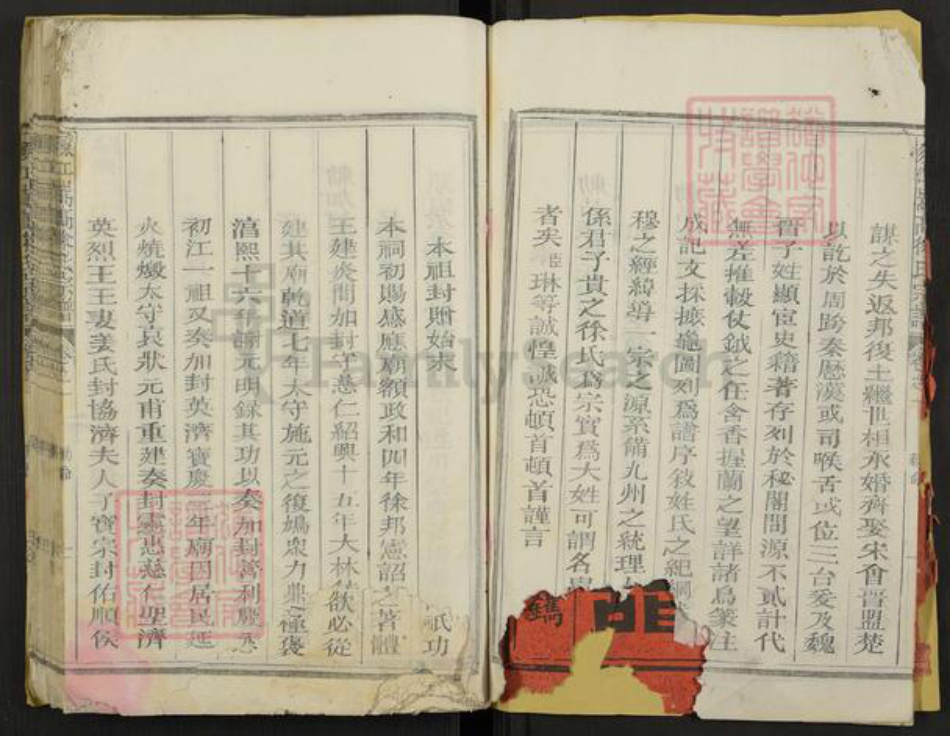 謀之失返邦復土繼世相承婚齊娶宋會晋盟楚
以訖於周跨秦歷漢或司喉舌或位三台爰及魏
晋子姓顯宦史籍著存列於秘閣閭源不貳計代
無差推轂仗鉞之任含香握蘭之望詳諸鳥篆注
成記文採摭龜圖列爲譜序敘姓氏之紀綱
穆之經緯導一宗之源系備九州之統理
係君子貴之徐氏爲宗實爲大姓可謂名
者矣臣琳等誠惶誠恐頓首頓首謹言
鐫
本祖封贈始末
祇功
本祠初賜感應廟額政和四年徐邦憲詔 著體
王建炎間加封守慈仁紹興十五年大林 欲必從
建其廟乾道七年太守施元之復鳩衆力鼎 極褒
淳熙十六年謝元明錄其功以奏加封善利 
初江一祖又奏加封英濟寶慶 年廟因居民延
火燒燬太守袁狀元甫重建奏封靈忠慈仁聖濟
英烈王王妻姜氏封協濟夫人子寶宗封佑順侯
FamilySearch